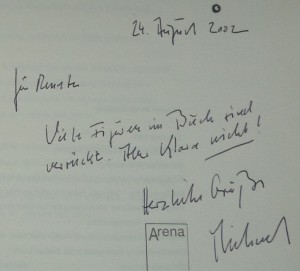 24. August 2002
für Renate
Viele Figuren im Buch sind
verrückt. Aber Klara nicht!
Herzliche Grüße
Arena
Michael